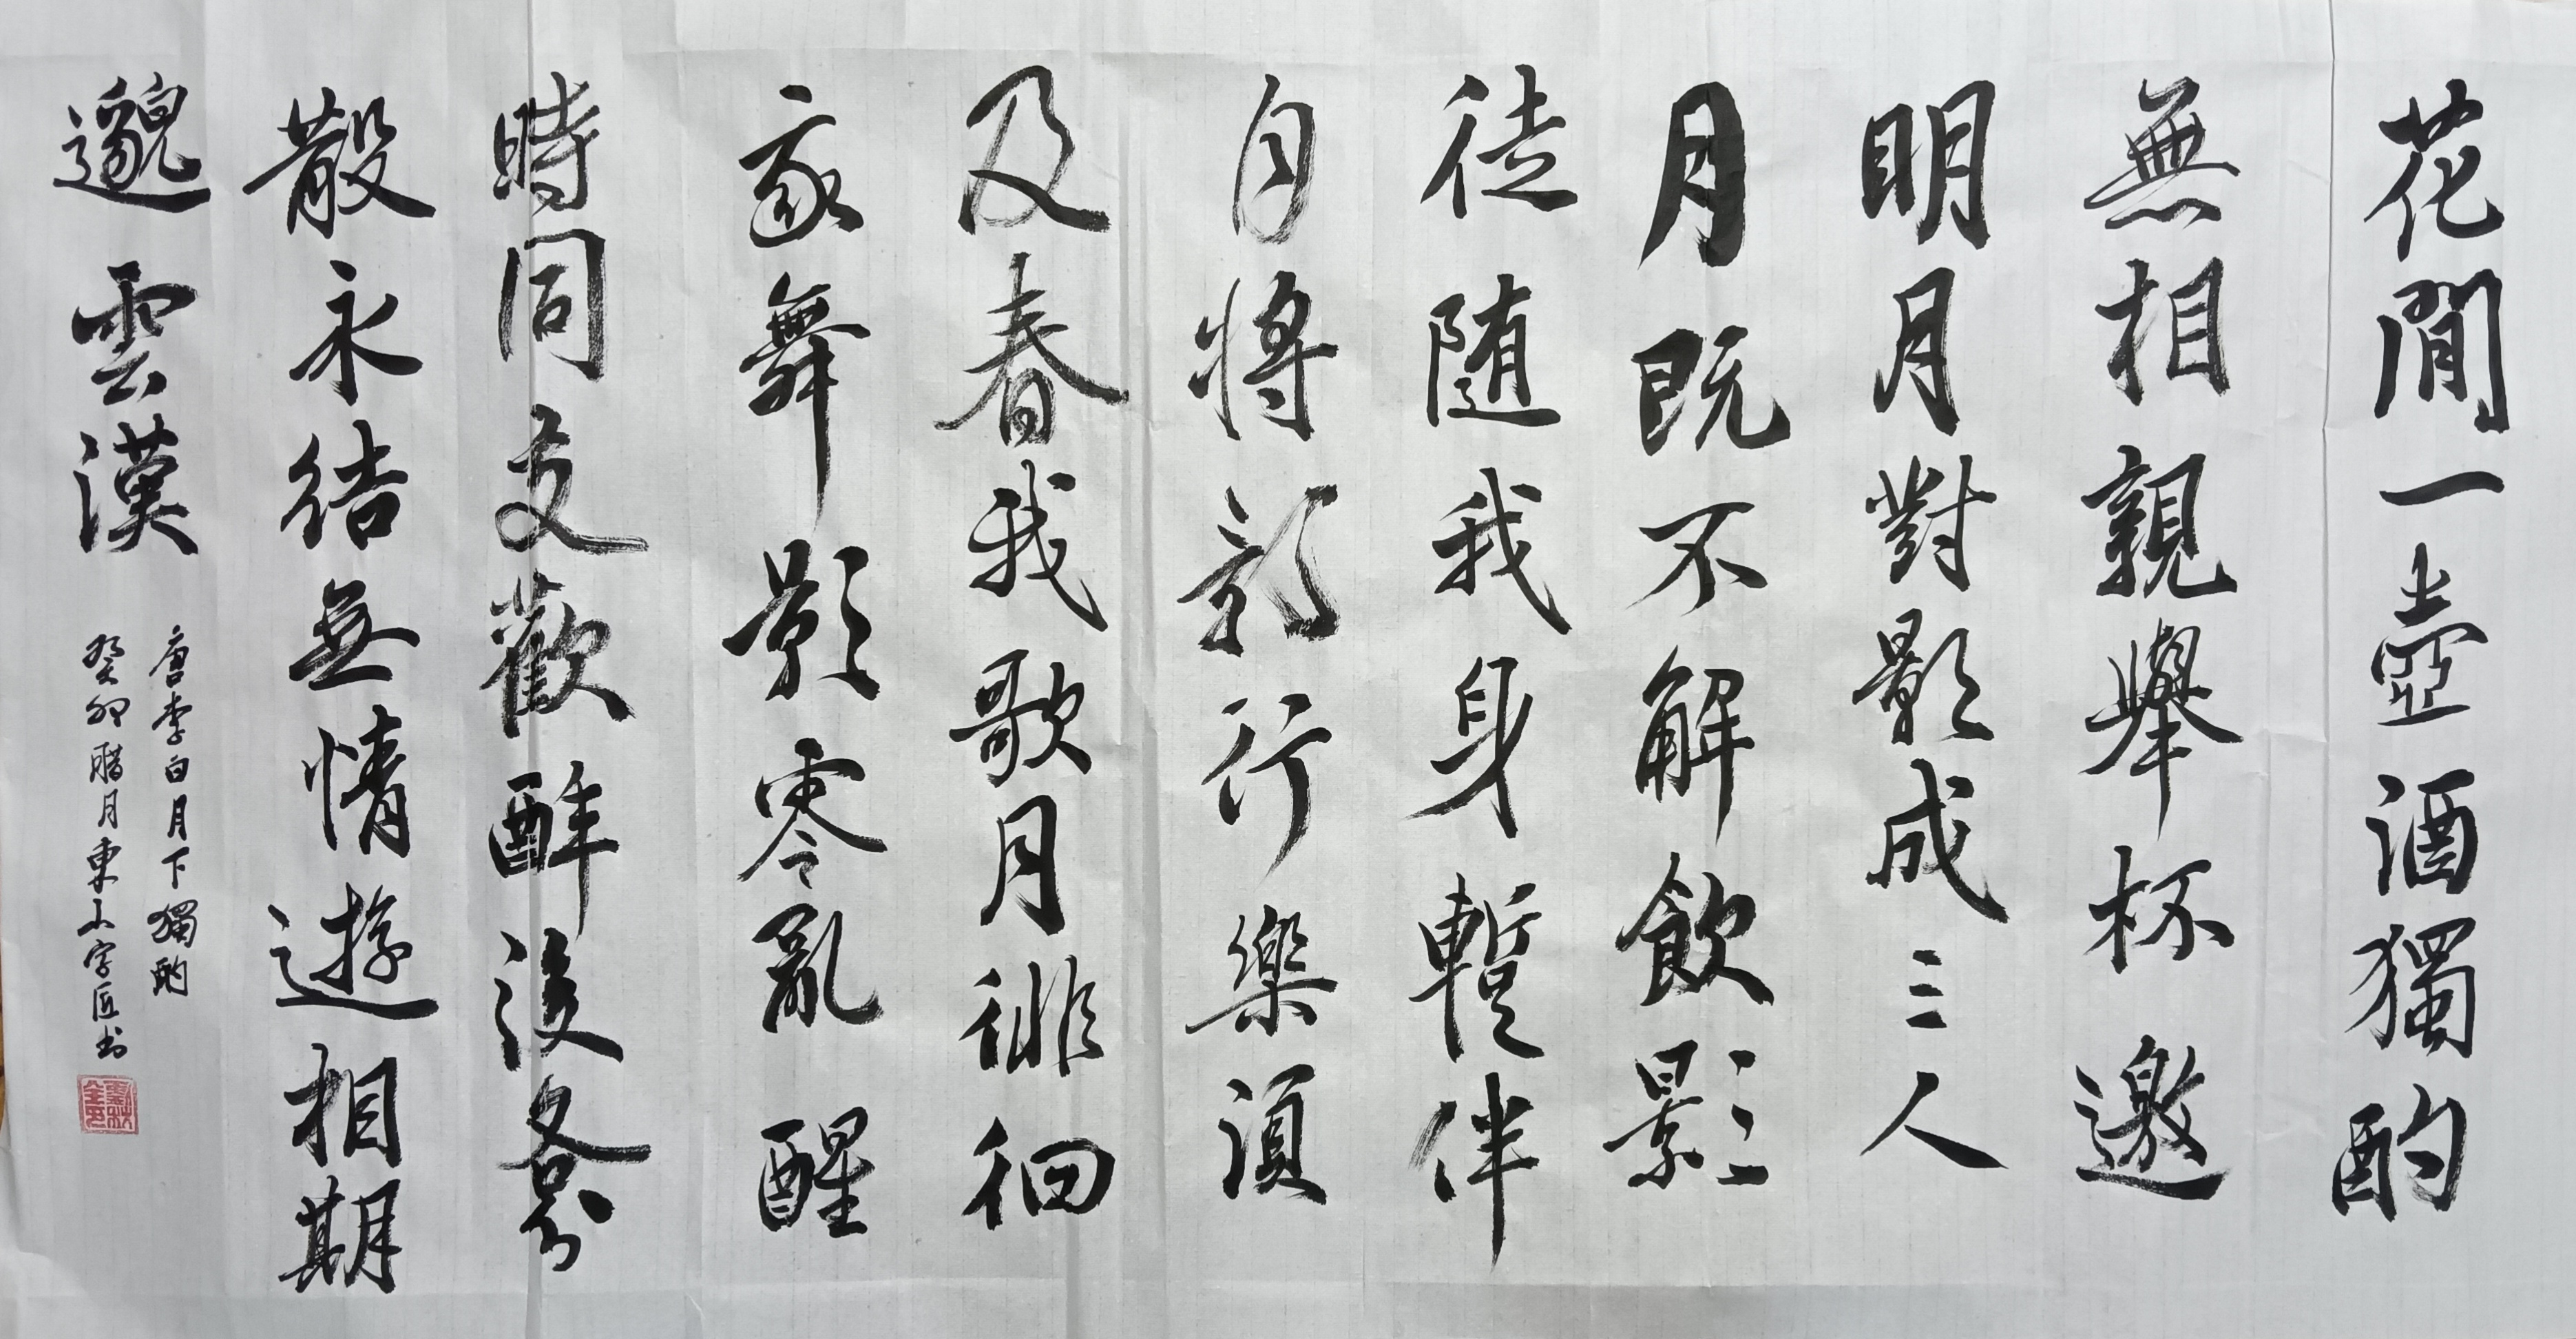 花閒一壺酒獨酌
無相親舉杯邀
明月對影成三人
月既不解飲影
徒随我身暫伴
月將影行樂須
及春我歌月徘徊
我舞影零亂醒
時同交歡醉後各分
散永結無情遊相期
邈雲漢
唐李白月下獨酌
癸卯腊月東山字匠书